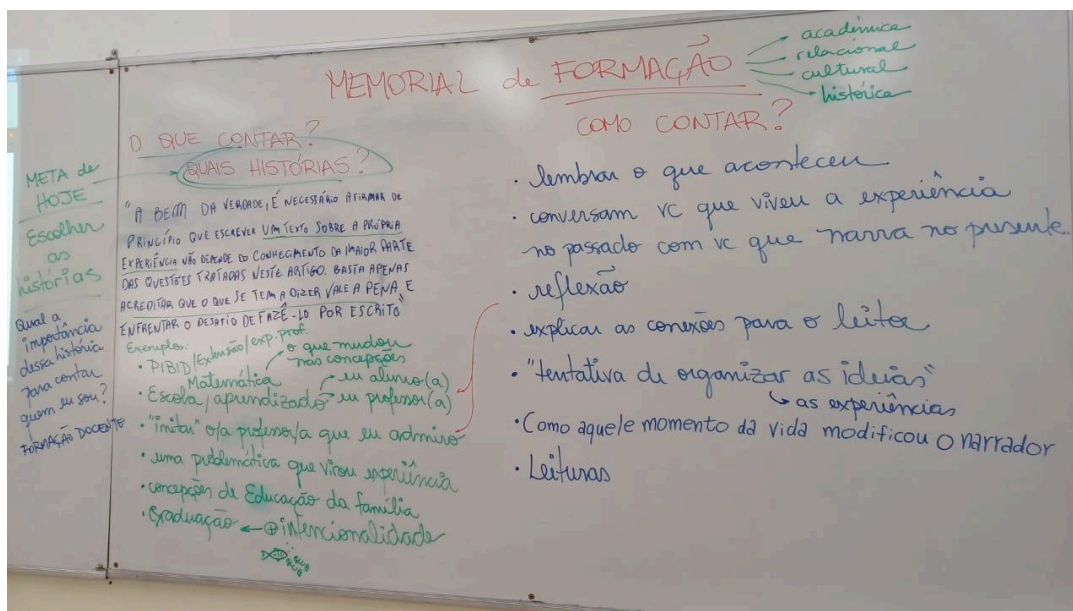 MEMORIAL de FORMAÇÃO
acadêmica
relacional
cultural
histórica
META de
HOJE
Escolher
as
histórias
Qual a
importância
dessa história
para contar
quem eu sou?
FORMAÇÃO DOCENTE
O QUE CONTAR?
QUAIS HISTÓRIAS?
"A BEM DA VERDADE, É NECESSÁRIO AFIRMAR DE
PRINCÍPIO QUE ESCREVER UM TEXTO SOBRE A PRÓPRIA
EXPERIÊNCIA NÃO DEPENDE DO CONHECIMENTO DA MAIOR PARTE
DAS QUESTÕES TRATADAS NESTE ARTIGO. BASTA APENAS
ACREDITAR QUE O QUE SE TEM A DIZER VALE A PENA, E
ENFRENTAR O DESAFIO DE FAZÊ-LO POR ESCRITO"
Exemplos:
• PIBID/Extensão/exp. prof.
o que mudou
nas concepções
Matemática
• Escola, aprendizado
eu aluno(a)
eu professor(a)
• "imitar" o/a professor/a que eu admiro
• uma problemática que virou experiência
• concepções de Educação da família
• Graduação ← ⊕ intencionalidade
COMO CONTAR?
• lembrar o que aconteceu
• conversam vc que viveu a experiência
no passado com vc que narra no presente
• reflexão
• explicar as conexões para o leitor
• "tentativa de organizar as ideias"
as experiências
• Como aquele momento da vida modificou o narrador
• Leituras